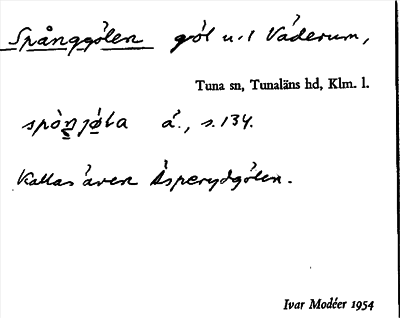 Spånggölen göl u. l Väderum,
Tuna sn, Tunaläns hd, Klm. l.
spo̊njøla å., s. 134.
Kallas även Åsperydgölen.
Ivar Modéer 1954